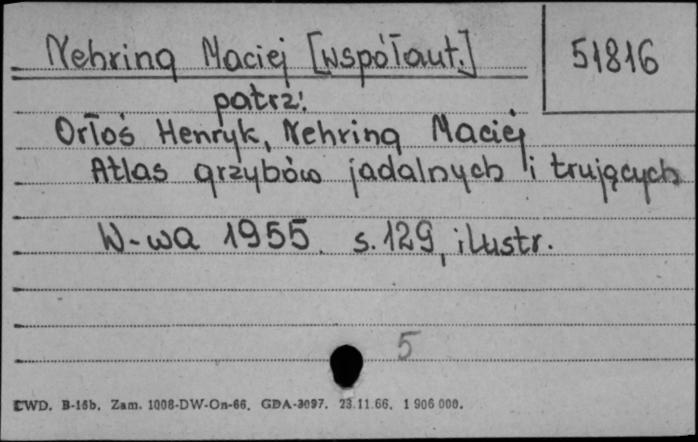 Nehring Maciej [współaut.]
51816
patrz:
Orłoś Henryk, Nehring Maciej
Atlas grzybów jadalnych i trujących
W-wa 1955. s. 129, ilustr.
5
CWD. B-16b. Zam. 1008-DW-On-66. GDA-3097. 23.11.66. 1 906 000.